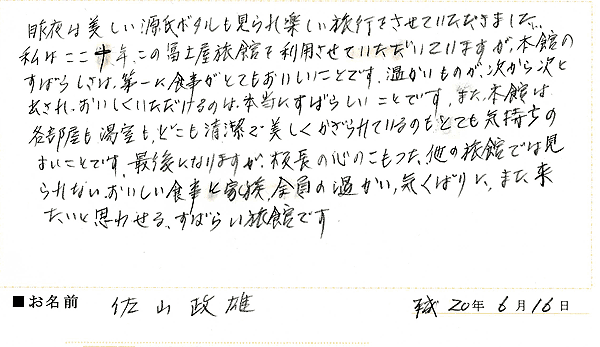 昨夜は美しい源氏ボタルも見られ楽しい旅行をさせていただきました。
私はここ十年、この冨士屋旅館を利用させていただいていますが、本館の
すばらしさは、第一に食事がとてもおいしいことです。温かいものが、次から次と
出され、おいしくいただけるのは、本当にすばらしいことです。また、本館は
各部屋も浴室も、どこも清潔で美しくかざられているのもとても気持ちの
よいことです。最後になりますが、板長の心のこもった、他の旅館では見
られないおいしい食事と家族、全員の温かい、気くばりに、また来
たいと思わせる、すばらしい旅館です
■お名前 佐山政雄 平成20年6月16日